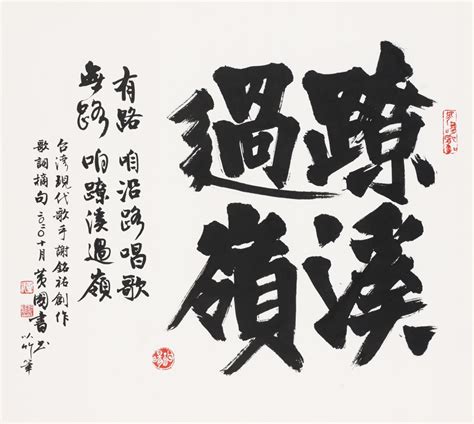 蹽溪
過嶺
有路 咱沿路唱歌
無路 咱蹽溪過嶺
台灣現代歌手謝銘祐創作
歌詞摘句 二〇二〇十月 黃國書 以竹筆